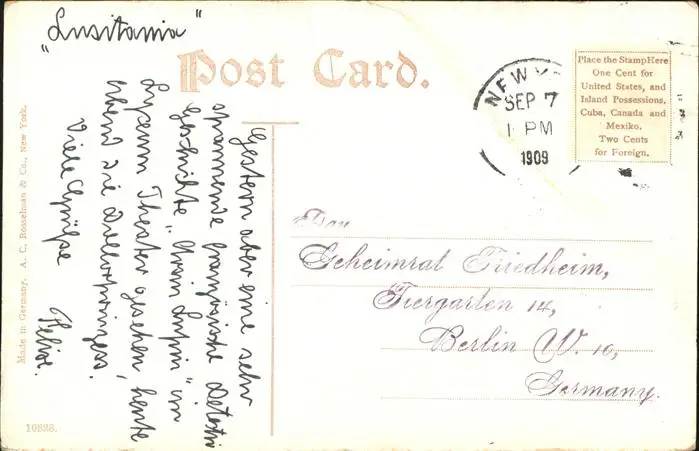 "Lusitania"
Post Card.
NEW Y
SEP 7
1 PM
1909
Place the Stamp Here
One Cent for
United States, and
Island Possessions,
Cuba, Canada and
Mexiko.
Two Cents
for Foreign.
Gestern aber eine sehr
spannende französische Detektiv
Geschichte "Arsin Lupin" im
Lyceum Theater gesehen, heute
Abend die Dollarprinzess.
Viele Grüße
Frau
Geheimrat Friedheim,
Tiergarten 14,
Berlin W. 10,
Germany.
Made in Germany. A. C. Bosselman & Co., New York.
10828.